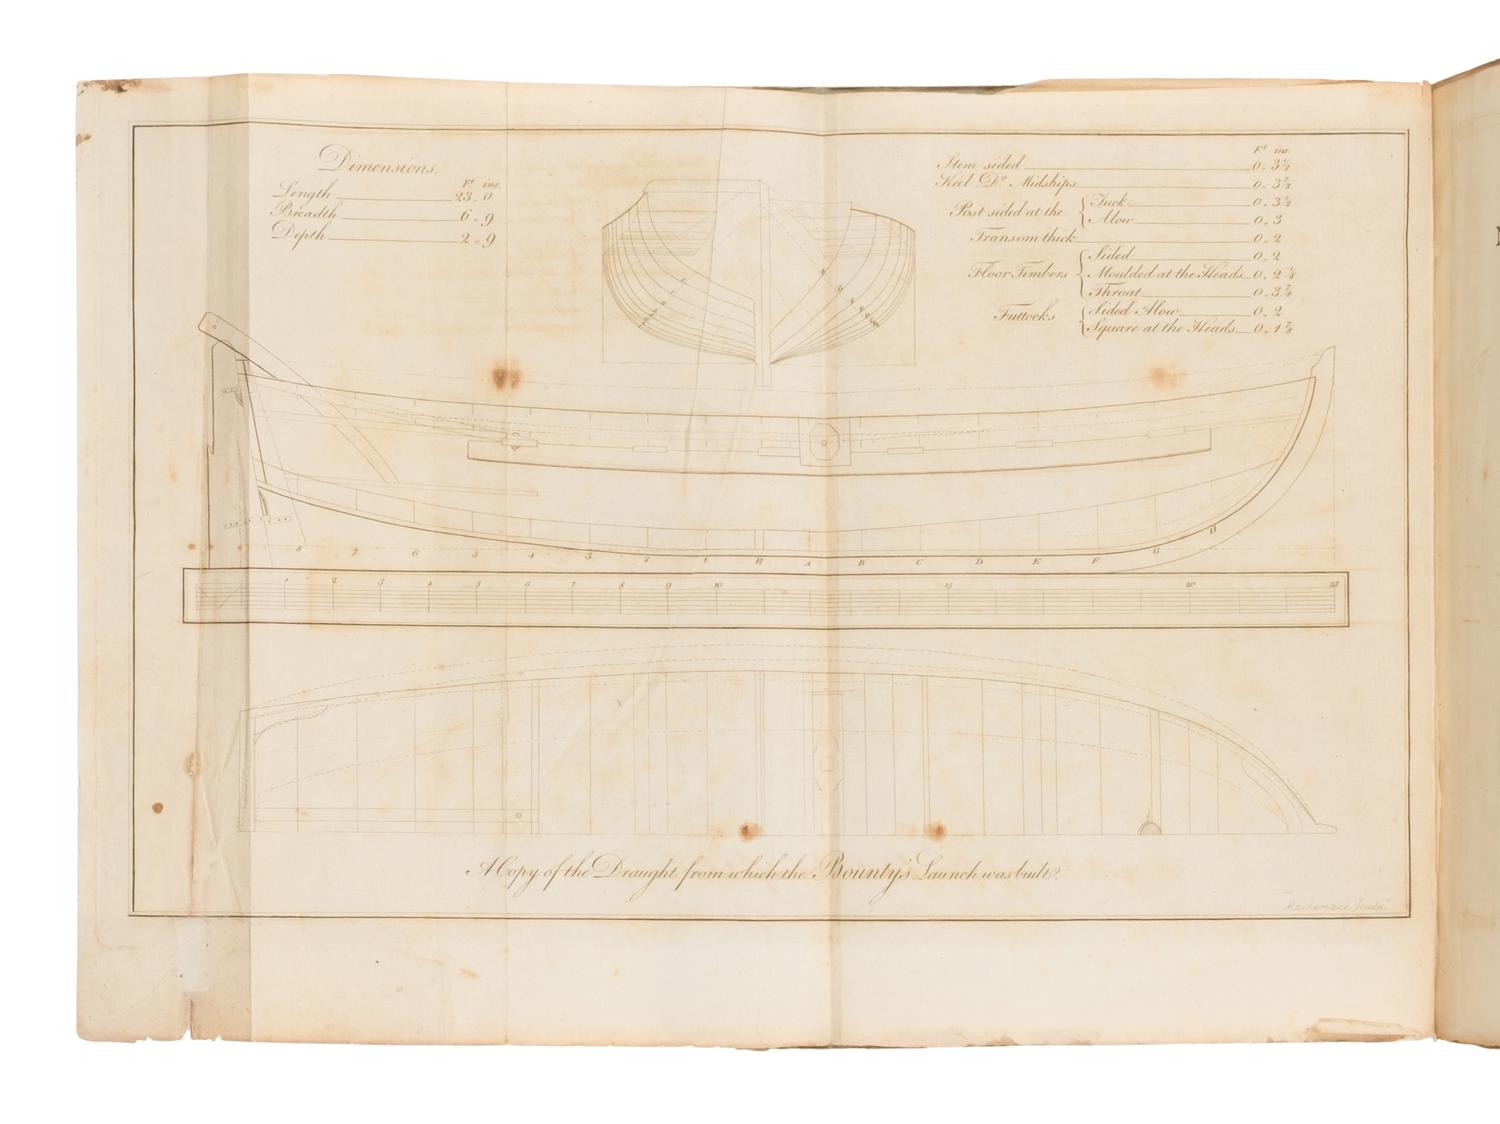 Dimensions.
Ft. ins.
Length 23. 0
Breadth 6. 9
Depth 2. 9
Ft. ins.
Stem sided 0. 3½
Keel Do. Midships 0. 3
Post sided at the { Tuck 0. 3½
Alow 0. 3
Transom thick 0. 2
Floor Timbers { Sided 0. 2
Moulded at the Heads 0. 2
Throat 0. 3
Futtocks { Sided Alow 0. 2
Square at the Heads 0. 1
8 7 6 5 4 3 2 1 A B C D E F G H
1 2 3 4 5 6 7 8 9 10 15 20 23
A Copy of the Draught from which the Bounty's Launch was built.
Mackenzie Sculpt.